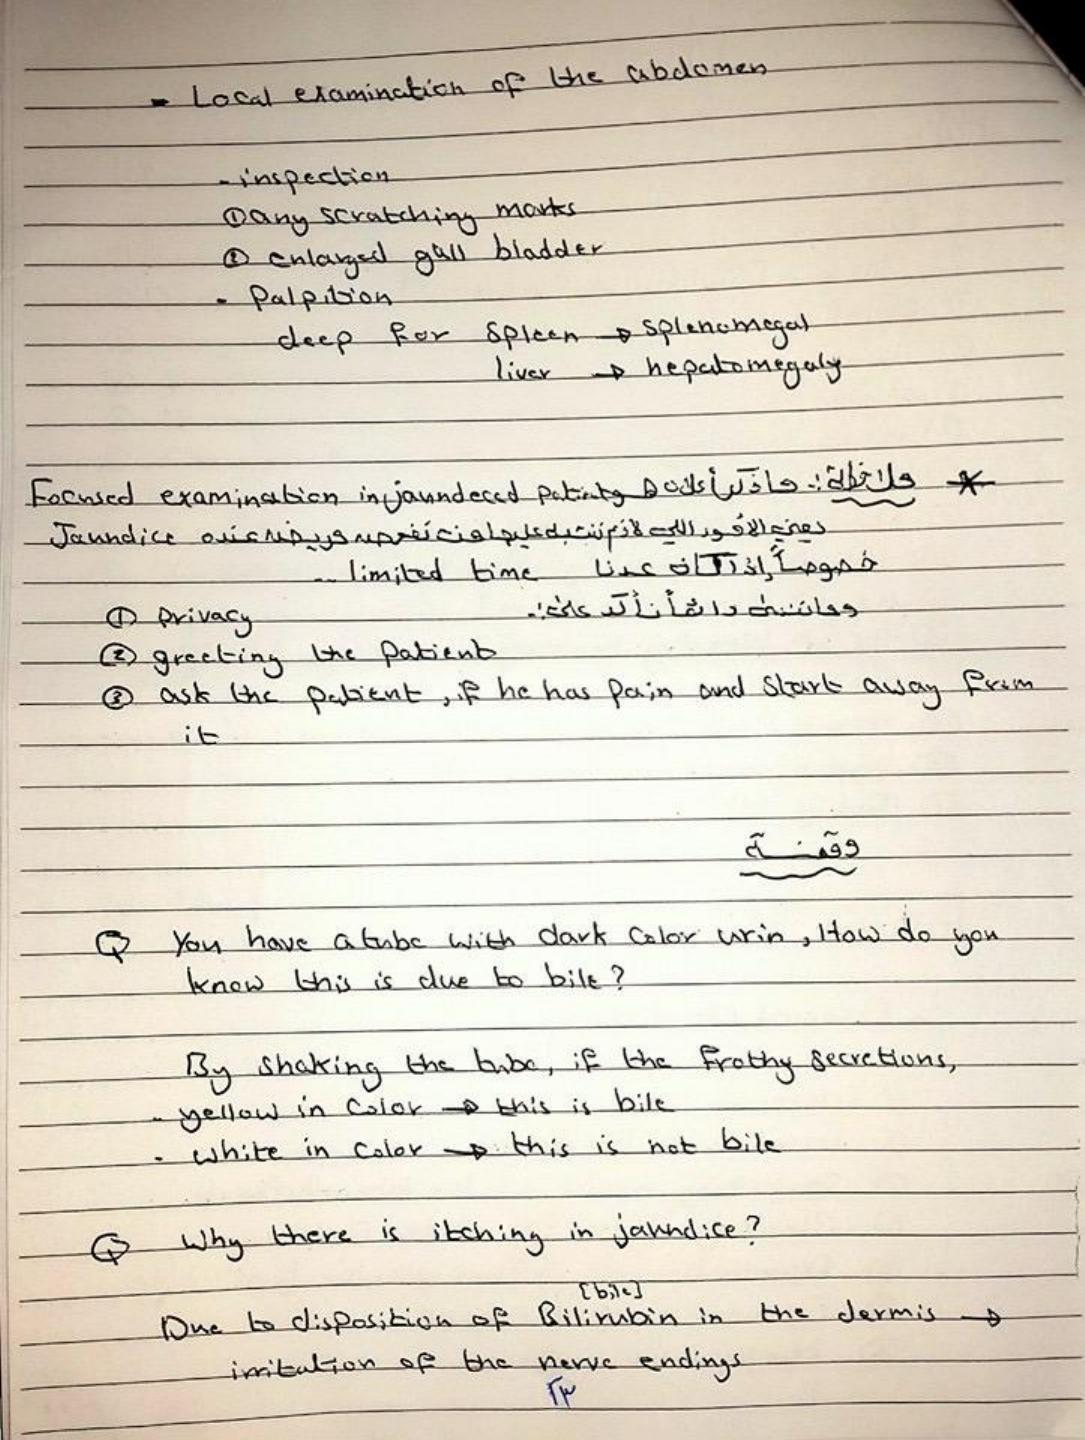 - Local examination of the abdomen
- inspection
① any scratching marks
② enlarged gall bladder
- Palpition
deep for spleen → splenomegal
liver → hepatomegaly
* ملاحظة: ماذكر أعلاه Focused examination in jaundeced patient
وهي الأمور اللي لازم ننتبه عليها ونفحصه مريض عنده Jaundice
خصوصاً إذا كان عدنا limited time ..
وماننسى دائماً نأكد على:-
① privacy
② greeting the patient
③ ask the patient, if he has pain and start away from
it
وقفة
Q You have a tube with dark color urin, How do you
know this is due to bile?
By shaking the tube, if the frothy secretions,
- yellow in color → this is bile
- white in color → this is not bile
Q Why there is itching in jaundice?
[bile]
Due to disposition of Bilirubin in the dermis →
irritation of the nerve endings
٢٣